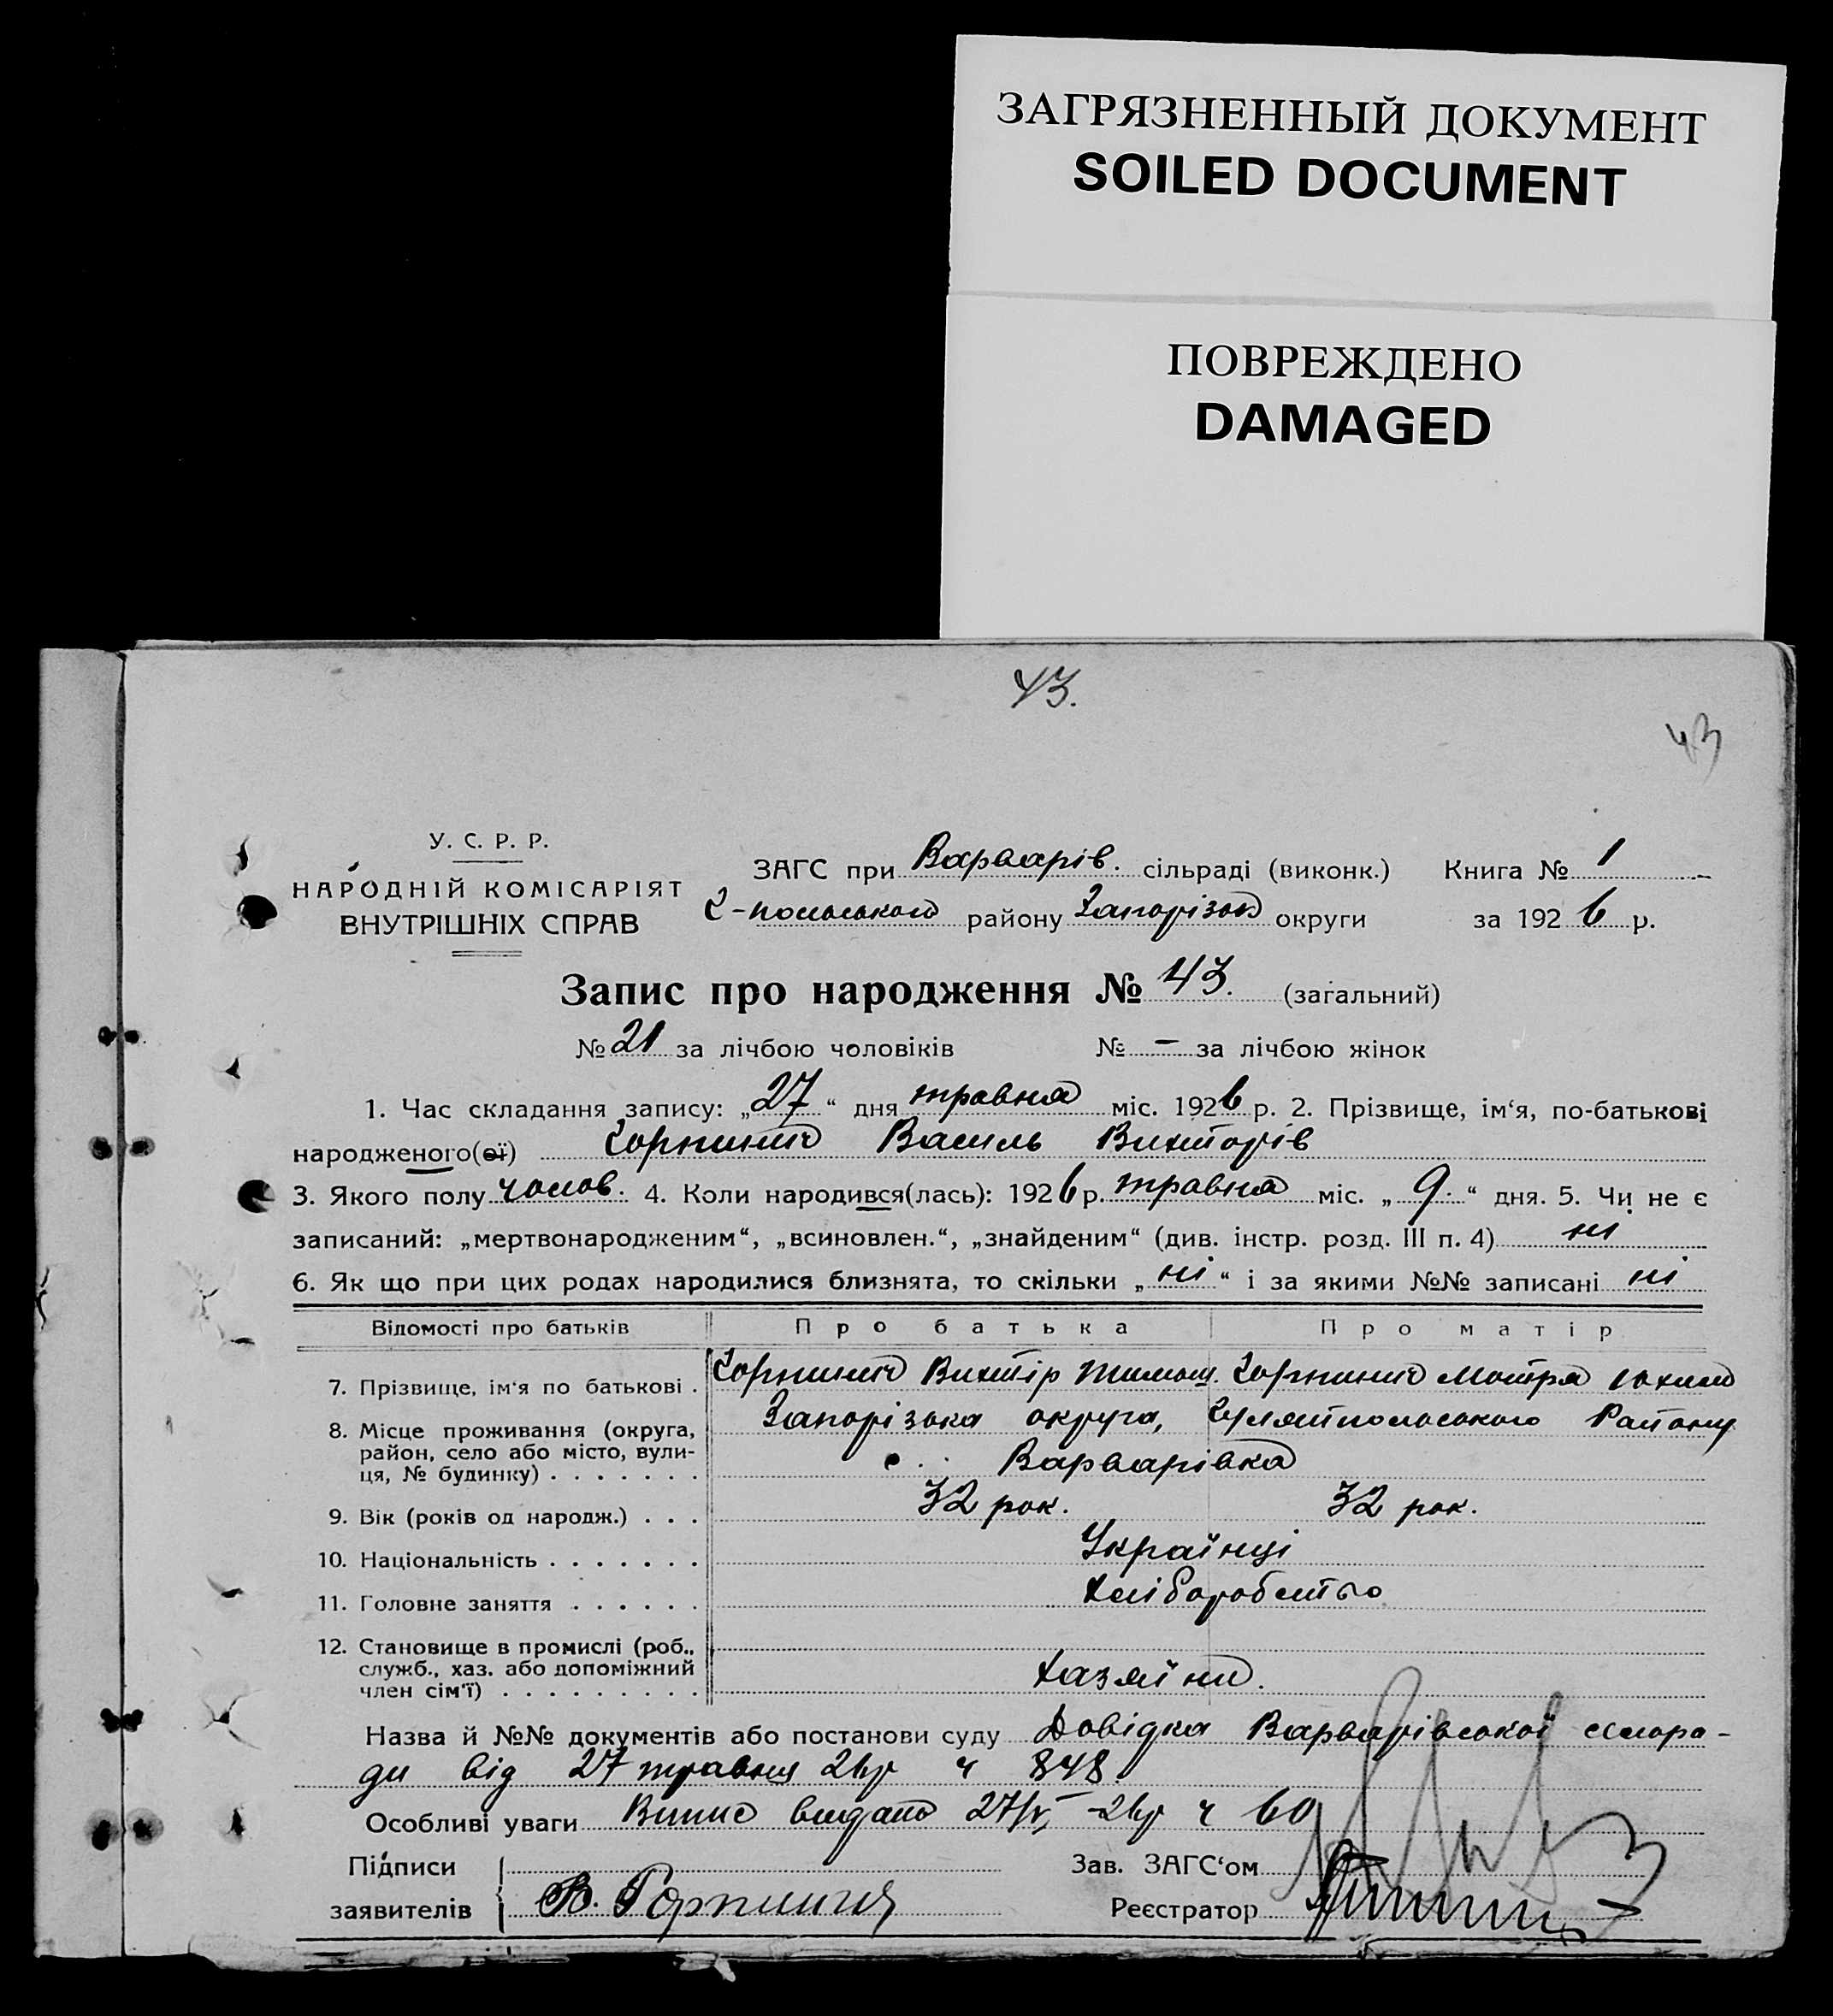 ЗАГРЯЗНЕННЫЙ ДОКУМЕНТ
SOILED DOCUMENT
ПОВРЕЖДЕНО
DAMAGED
43.
43
У. С. Р. Р.
НАРОДНІЙ КОМІСАРІЯТ
ВНУТРІШНІХ СПРАВ
ЗАГС при Варварів. сільраді (виконк.) Книга № 1
Г-польського району Запорізької округи за 1926 р.
Запис про народження № 43. (загальний)
№ 21 за лічбою чоловіків № – за лічбою жінок
1. Час складання запису: „27“ дня травня міс. 1926 р. 2. Прізвище, ім‘я, по-батькові
народженого(ої) Горпинич Василь Вихторів
3. Якого полу чолов. 4. Коли народився(лась): 1926 р. травня міс. „9.“ дня. 5. Чи не є
записаний: „мертвонародженим“, „всиновлен.“, „знайденим“ (див. інстр. розд. III п. 4) ні
6. Як що при цих родах народилися близнята, то скільки „ні“ і за якими №№ записані ні
Відомості про батьків Про батька Про матір
7. Прізвище, ім‘я по батькові . Горпинич Вихтір Тимош. Горпинич Мотря Юхим
8. Місце проживання (округа, район, село або місто, вулиця, № будинку) . . . . . . . Запорізька округа, Гуляйпольського Району
Варварівка
9. Вік (років од народж.) . . . 32 рок. 32 рок.
10. Національність . . . . . . . Українці
11. Головне заняття . . . . . . хліборобство
12. Становище в промислі (роб., служб., хаз. або допоміжний член сім‘ї) . . . . . . . . . хазяїни.
Назва й №№ документів або постанови суду Довідка Варварівської сільра-
ди від 27 травня 26 р ч 848.
Особливі уваги Випис видано 27/V-26 р ч 60
Підписи Зав. ЗАГС‘ом
заявителів В. Горпинич Реєстратор